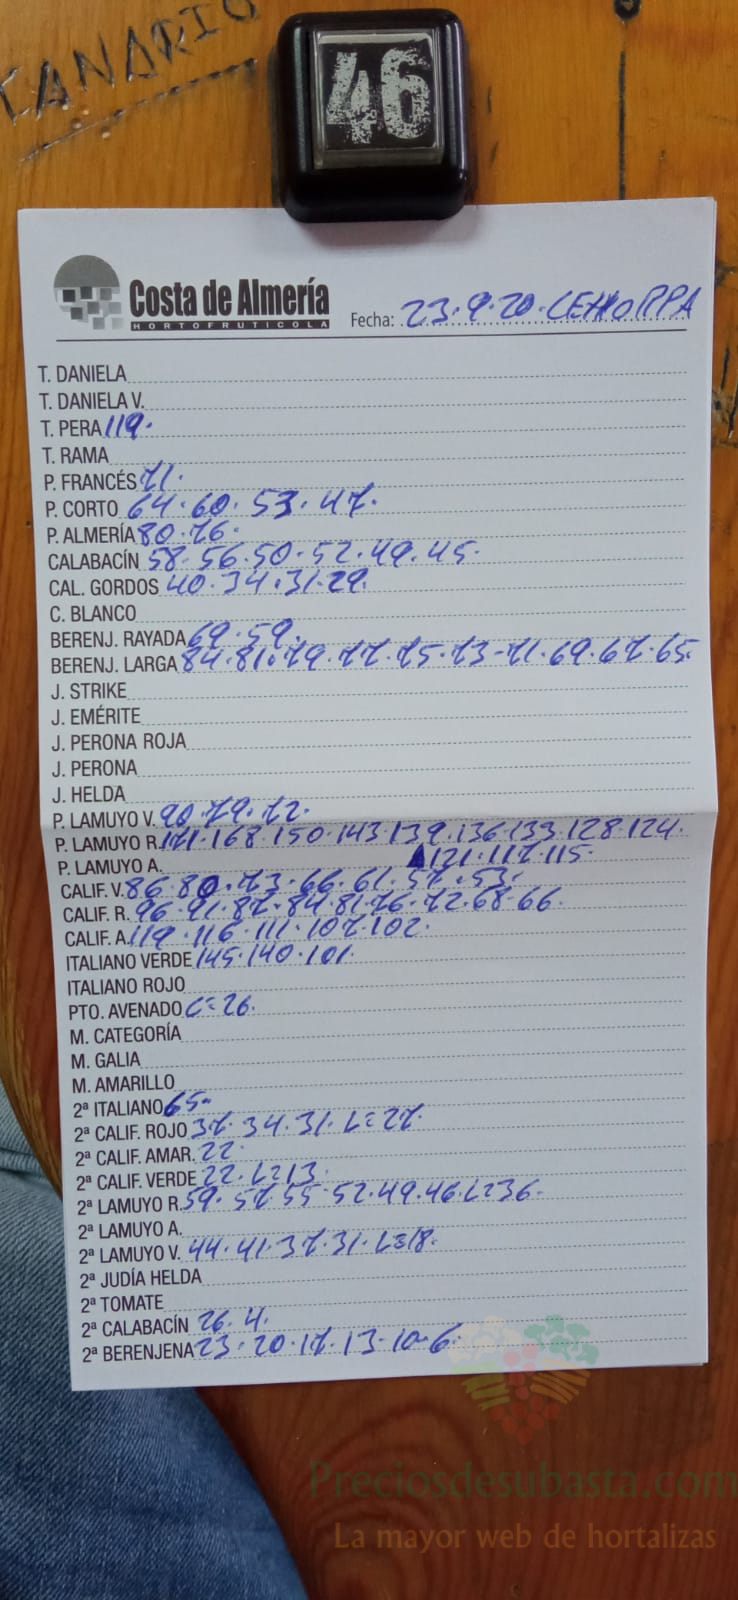 CANARIO
46
Costa de Almería
HORTOFRUTICOLA
Fecha: 23.9.20.CEHORPA
T. DANIELA
T. DANIELA V.
T. PERA 119.
T. RAMA
P. FRANCÉS 71.
P. CORTO 64.60.53.47.
P. ALMERÍA 80.76.
CALABACÍN 58.56.50.52.49.45.
CAL. GORDOS 40.34.31.29.
C. BLANCO
BERENJ. RAYADA 69.59.
BERENJ. LARGA 84.81.79.77.75.73-71.69.67.65.
J. STRIKE
J. EMÉRITE
J. PERONA ROJA
J. PERONA
J. HELDA
P. LAMUYO V. 90.79.72.
P. LAMUYO R. 171.168.150.143.139.136.133.128.124.
P. LAMUYO A. 121.117.115.
CALIF. V. 86.80.73.66.61.57.53.
CALIF. R. 96.91.87.84.81.76.72.68.66.
CALIF. A. 119.116.111.107.102.
ITALIANO VERDE 145.140.101.
ITALIANO ROJO
PTO. AVENADO C=26.
M. CATEGORÍA
M. GALIA
M. AMARILLO
2ª ITALIANO 65.
2ª CALIF. ROJO 37.34.31.L=27.
2ª CALIF. AMAR. 22.
2ª CALIF. VERDE 22.L=13.
2ª LAMUYO R. 59.57.55.52.49.46.L=36.
2ª LAMUYO A.
2ª LAMUYO V. 44.41.37.31.L=18.
2ª JUDÍA HELDA
2ª TOMATE
2ª CALABACÍN 26.4.
2ª BERENJENA 23.20.17.13.10.6.
Preciosdesubasta.com
La mayor web de hortalizas